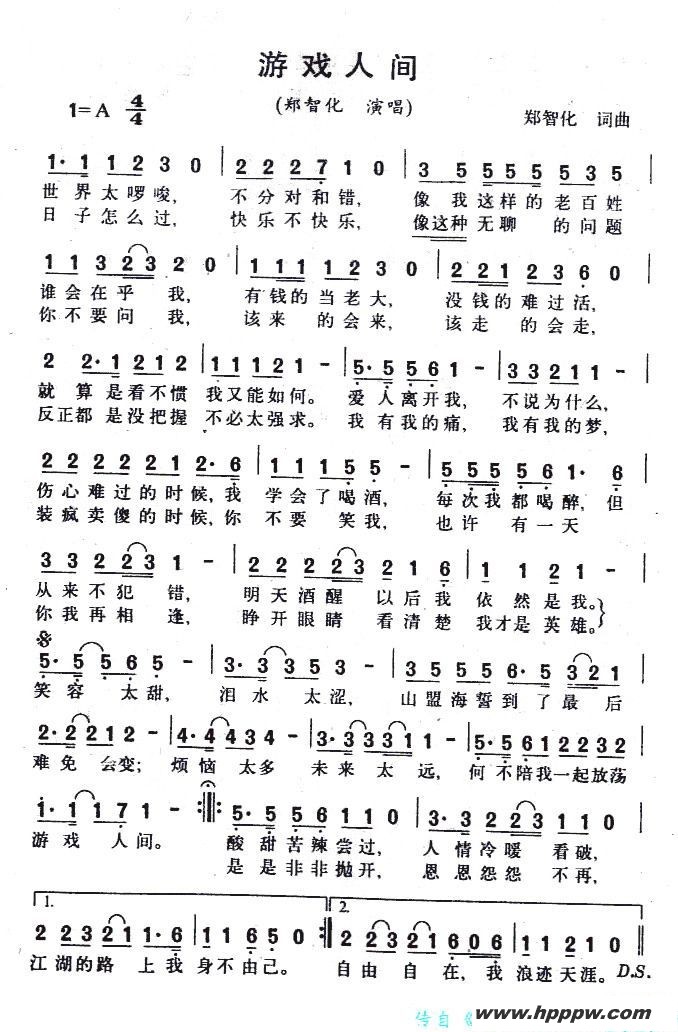 游戏人间
1=A 4/4
(郑智化 演唱)
郑智化 词曲
1· 1 1 2 3 0 | 2 2 2 7 1 0 | 3 5 5 5 5 5 3 5 |
世界太啰唆, 不分对和错, 像我这样的老百姓
日子怎么过, 快乐不快乐, 像这种无聊 的问题
1 1 3 2 3 2 0 | 1 1 1 1 2 3 0 | 2 2 2 1 2 3 6 0 |
谁会在乎 我, 有钱的当老大, 没钱的难过活,
你不要问 我, 该来 的会来, 该走 的会走,
2 2· 1 2 1 2 | 1 1 1 2 1 - | 5· 5 5 6 1 - | 3 3 2 1 1 - |
就算是看不惯 我又能如何。 爱人离开我, 不说为什么,
反正都是没把握 不必太强求。 我有我的痛, 我有我的梦,
2 2 2 2 2 2 2· 6 | 1 1 1 5 5 - | 5 5 5 5 6 1· 6 |
伤心难过的时候,我 学会了喝酒, 每次我都喝醉,但
装疯卖傻的时候,你 不要 笑我, 也许 有一天
3 3 2 2 3 1 - | 2 2 2 2 3 2 2 6 | 1 1 2 1 - |
从来不犯 错, 明天酒醒 以后我 依然是我。
你我再相 逢, 睁开眼睛 看清楚 我才是英雄。
5· 5 5 6 5 - | 3· 3 3 5 3 - | 5 5 5 5 5· 6 3 2 1 |
笑容 太甜, 泪水 太涩, 山盟海誓到了最后
2· 2 2 2 1 2 - | 4· 4 4 4 3 4 - | 3· 3 3 3 3 1 - | 5· 5 6 1 2 2 3 2 |
难免 会变; 烦恼 太多 未来 太远, 何不陪我一起放荡
1· 1 1 7 1 - :‖: 5· 5 5 6 1 1 0 | 3· 3 2 2 3 1 1 0 |
游戏 人间。 酸甜苦辣尝过, 人情冷暖 看破,
是是非非抛开, 恩恩怨怨 不再,
1. 2.
2 2 3 2 2 1 1· 6 | 1 1 6 5 0 :‖ 2 2 3 2 2 1 6 0 6 | 1 1 2 1 0 ‖
江湖的路 上我 身不由己。 自由自 在,我 浪迹天涯。D.S.
传自《
www.hpppw.com